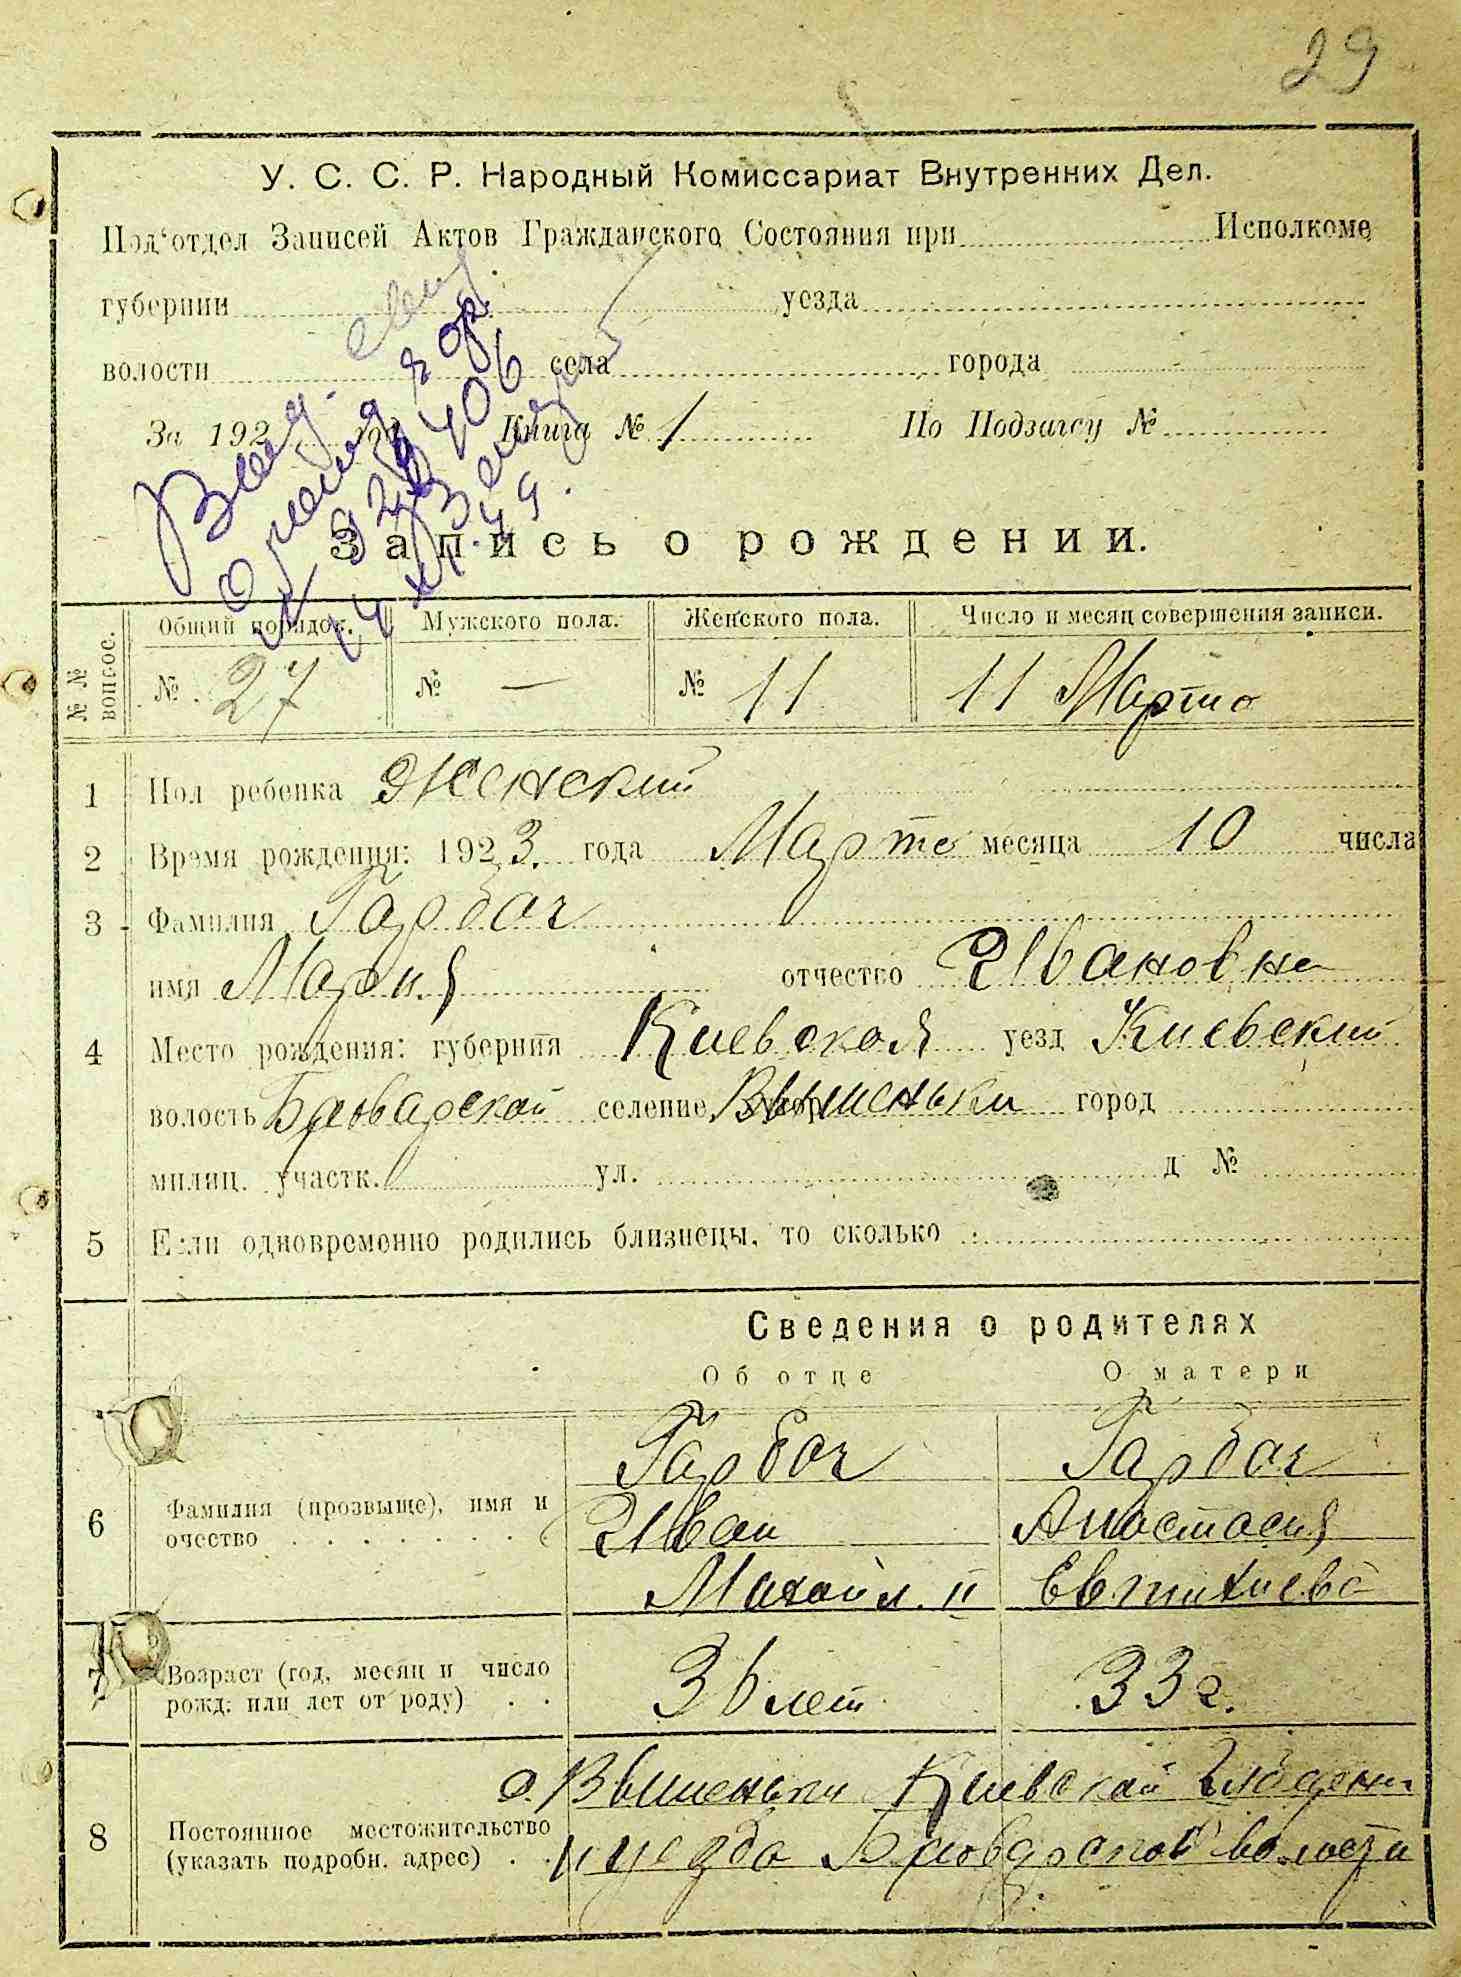 29
У. С. С. Р. Народный Комиссариат Внутренних Дел.
Под'отдел Записей Актов Гражданского Состояния при Исполкоме
губернии уезда
волости села города
За 192 год Книга № 1 По Подзагсу №
Запись о рождении.
№№ вопрос. Общий порядок. Мужского пола. Женского пола. Число и месяц совершения записи.
№ 27 № — № 11 11 Марта
1 Пол ребенка Женский
2 Время рождения: 1923. года Марта месяца 10 числа
3 Фамилия Гарбач
имя Мария отчество Ивановна
4 Место рождения: губерния Киевская уезд Киевский
волость Броварской селение Вышеньки город
милиц. участк. ул. д №
5 Если одновременно родились близнецы, то сколько
Сведения о родителях
Об отце О матери
Гарбач Гарбач
6 Фамилия (прозвыще), имя и Иван Анастасия
очество Михайл. Евтихиева
7 Возраст (год, месяц и число 36 лет 33 г.
рожд. или лет от роду)
с. Вышеньки Киевской губерни
8 Постоянное местожительство и уезда Броварской волости
(указать подробн. адрес)